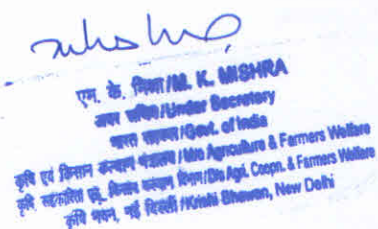 एम. के. मिश्रा/M. K. MISHRA
अवर सचिव/Under Secretary
भारत सरकार/Govt. of India
कृषि एवं किसान कल्याण मंत्रालय/M/o Agriculture & Farmers Welfare
कृषि, सहकारिता एवं किसान कल्याण विभाग/D/o Agri. Coopn. & Farmers Welfare
कृषि भवन, नई दिल्ली/Krishi Bhawan, New Delhi